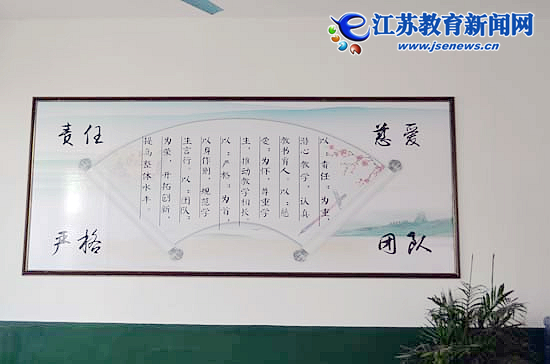 江苏教育新闻网
www.jsenews.cn
责任
慈爱
以“责任”为重，
潜心教学，认真
教书育人。以“慈
爱”为怀，尊重学
生，推动教学相长。
以“严格”为首，
以身作则，规范学
生言行。以“团队”
为荣，开拓创新，
提高整体水平。
严格
团队